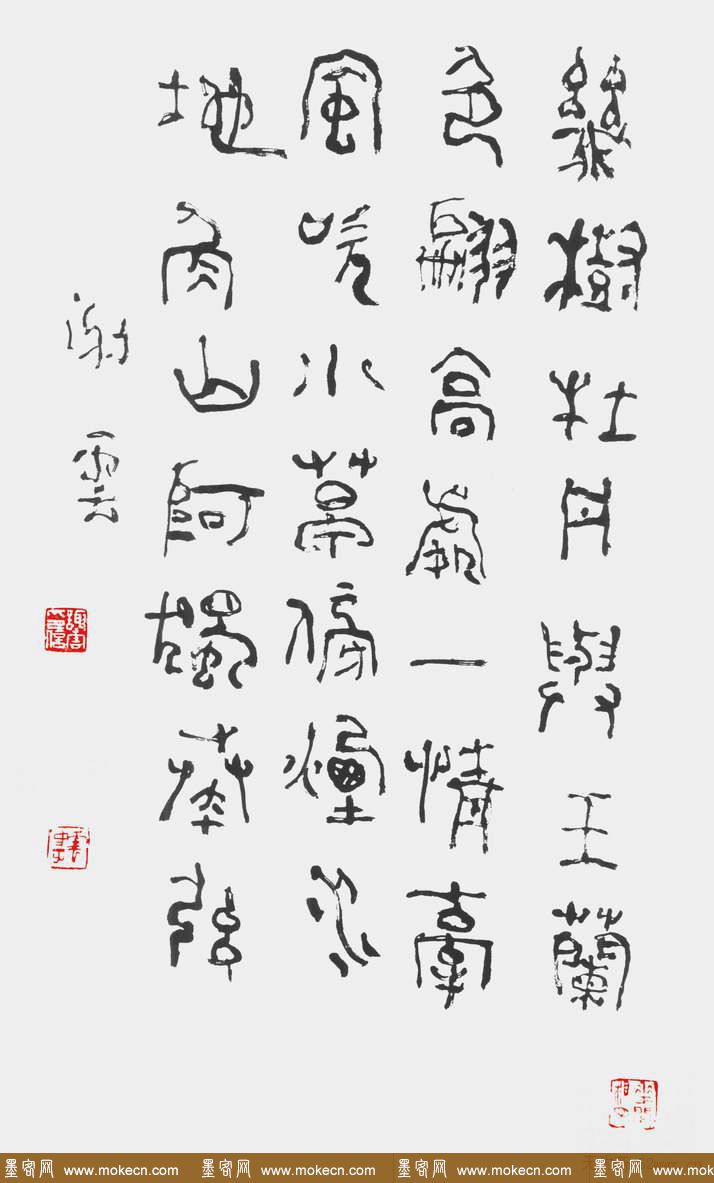 樹牡丹與玉蘭
色翩高處一情牽
風吹水傍煙
地角山阿獨弦
謝雲
墨客网 www.mokecn.com 墨客网 www.mokecn.com 墨客网 www.mokecn.com 墨客网 www.mok